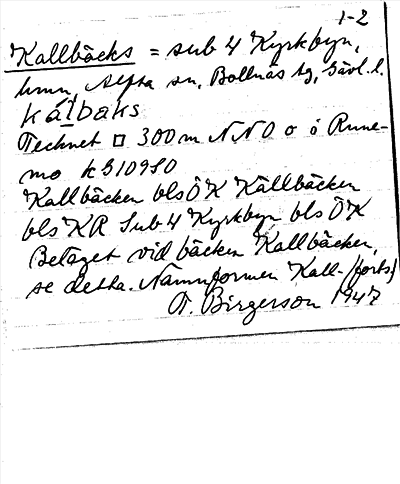 1-2
Kallbäcks = sub 4 Kyrkbyn,
hmn, Alfta sn, Bollnäs tg, Gävl. l.
kálbaks
Tecknet □ 300 m NNO o ö Rune-
mo kB109SO
Kallbäcken bls ÖK Källbäcken
bls KR Sub 4 Kyrkbyn bls ÖK
Beläget vid bäcken Kallbäcken,
se detta. Namnformen Kall- (forts)
F. Birgerson 1947